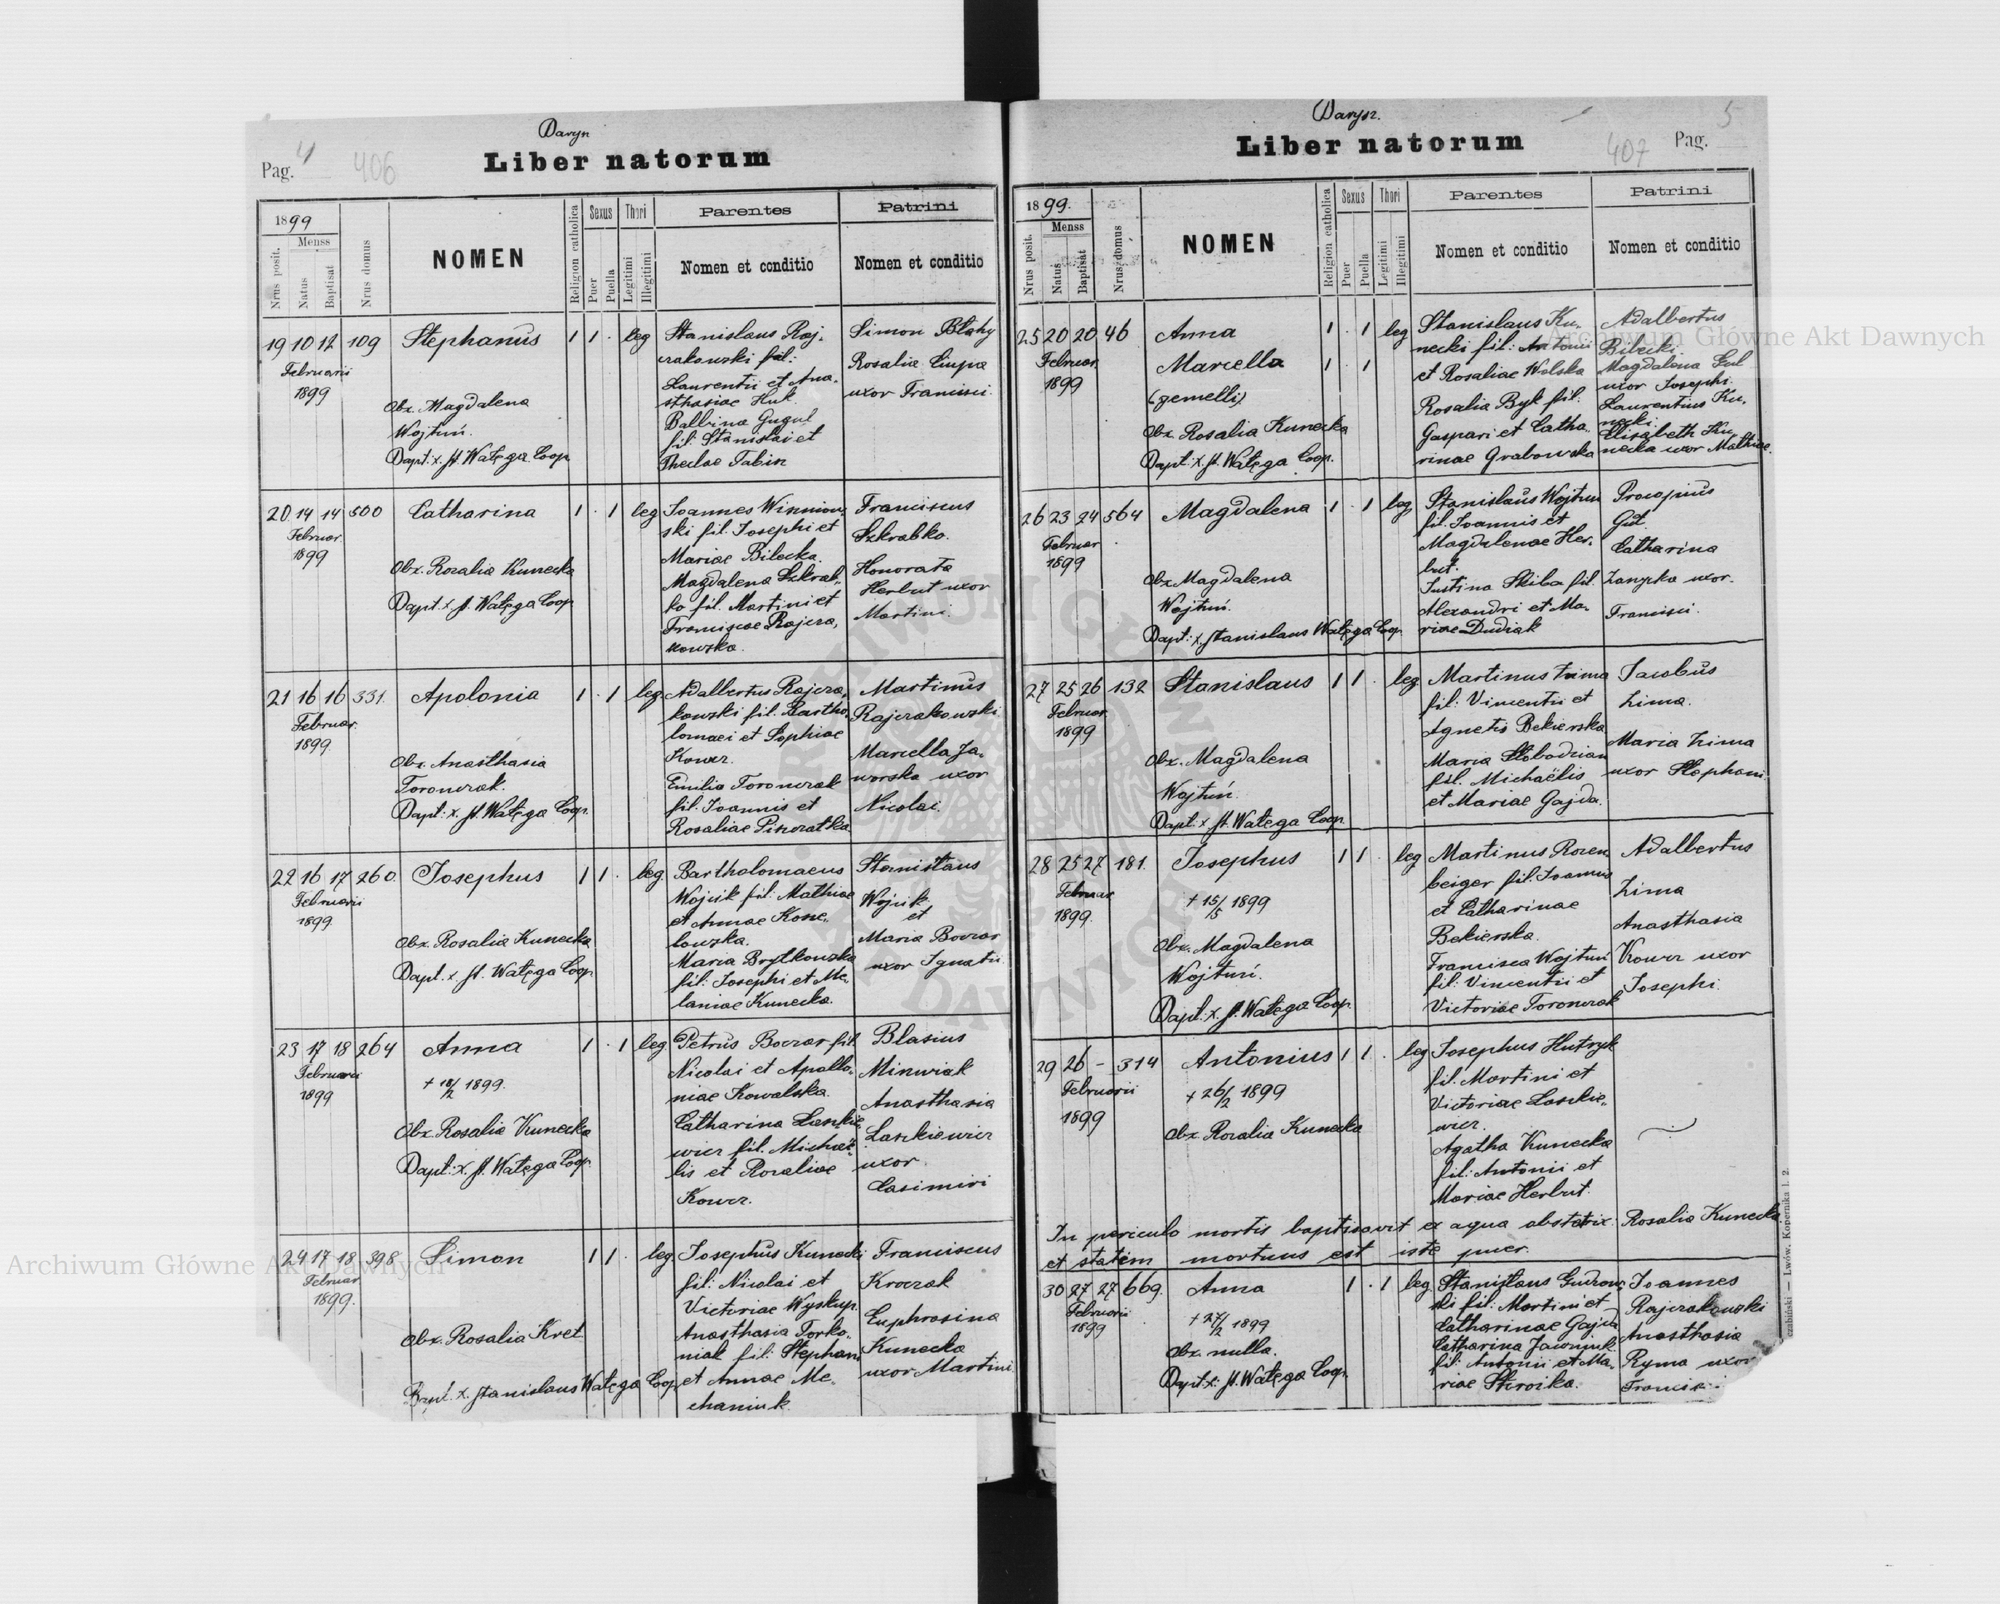 Davyn
Pag. 4 406
Liber natorum
1899
Menss
Nrus posit.
Natus
Baptisat
Nrus domus
NOMEN
Religion catholica
Sexus
Puer
Puella
Thori
Legitimi
Illegitimi
Parentes
Nomen et conditio
Patrini
Nomen et conditio
19 10 12 109 Stephanus 1 1 · leg
Februarii
1899
Obx. Magdalena
Wojtuń.
Bapt: x. St. Watęga Coop.
Stanislaus Raj-
czakowski fil:
Laurentii et Ana-
sthasiae Huk.
Balbina Gugul
fil: Stanislai et
Theclae Tabin
Simon Błahy
Rosalia Ciupa
uxor Francisci.
20 14 14 500 Catharina 1 · 1 leg
Februar.
1899
Obx. Rozalia Kunecka
Bapt. x. St. Watęga Coop
Joannes Winniow-
ski fil. Josephi et
Mariae Bilecka.
Magdalena Szkrab-
ko fil. Martini et
Franciscae Rajcza-
kowska.
Franciscus
Szkrabko.
Honorata
Herbut uxor
Martini.
21 16 16 331. Apolonia 1 · 1 leg
Februar.
1899
Obx. Anasthasia
Toronczak.
Bapt: x. St. Watęga Coop.
Adalbertus Rajcza-
kowski fil. Bartho-
lomaei et Sophiae
Kowcz.
Emilia Toronczak
fil. Joannis et
Rosaliae Pisczatka
Martinus
Rajczakowski
Marcella Ja-
worska uxor
Nicolai
22 16 17 260. Josephus 1 1 · leg
Februarii
1899
Obx. Rosalia Kunecka
Bapt. x. St. Watęga Coop
Bartholomaeus
Wojcik fil: Mathiae
et Annae Kone-
lowska.
Maria Brytkowska
fil: Josephi et Me-
laniae Kunecka.
Stanislaus
Wojcik
et
Maria Boczar
uxor Ignatii.
23 17 18 264 Anna 1 · 1 leg
Februarii
1899
+ 18/2 1899.
Obx. Rosalia Kunecka
Bapt: x. St. Watęga Coop.
Petrus Boczar fil.
Nicolai et Apollo-
niae Kowalska.
Catharina Laszkie-
wicz fil. Michaë-
lis et Rozaliae
Kowcz.
Blasius
Minczak
Anasthasia
Laszkiewicz
uxor
Casimiri
24 17 18 398 Simon 1 1 · leg.
Februar.
1899.
Obx. Rosalia Kret
Bapt. x. Stanislaus Watęga Coop.
Josephus Kunecki
fil: Nicolai et
Victoriae Wyskup.
Anasthasia Torko-
niak fil: Stephani
et Annae Me-
chaniuk.
Franciscus
Kroczak
Euphrosina
Kunecka
uxor Martini
Liber natorum
407 Pag. 5
1899.
Menss
Nrus posit.
Natus
Baptisat
Nrus domus
NOMEN
Religion catholica
Sexus
Puer
Puella
Thori
Legitimi
Illegitimi
Parentes
Nomen et conditio
Patrini
Nomen et conditio
25 20 20 46 Anna 1 · 1 leg
Februar. Marcella 1 · 1
1899 (gemelli)
Obx. Rosalia Kunecka
Bapt: x. St. Watęga Coop.
Stanislaus Ku-
necki fil: Antonii
et Rosaliae Wolska
Rosalia Byk fil:
Gaspari et Catha-
rinae Grabowska
Adalbertus
Bilecki
Magdalena Gul
uxor Josephi.
Laurentius Ku-
necki.
Elisabeth Ku-
necka uxor Mathiae.
26 23 24 564 Magdalena 1 · 1 leg
Februar
1899
Obx. Magdalena
Wojtuń.
Bapt: x. Stanislaus Watęga Coop
Stanislaus Wojtuń
fil. Joannis et
Magdalenae Her-
but.
Justina Skiba fil.
Alexandri et Ma-
riae Dudiak
Procopius
Gut.
Catharina
uxor.
Francisci.
27 25 26 132 Stanislaus 1 1 · leg
Februar.
1899
Obx. Magdalena
Wojtuń.
Bapt: x. St. Watęga Coop.
Martinus Zima
fil: Vincentii et
Agnetis Bekierska
Maria Slobodzian
fil. Michaëlis
et Mariae Gajda.
Jacobus
Zima.
Maria Zima
uxor Stephani.
28 25 27 181. Josephus 1 1 · leg
Februar
1899.
+ 15/5 1899
Obx. Magdalena
Wojtuń.
Bapt. x. St. Watęga Coop.
Martinus Rozen-
beiger fil. Joannis
et Catharinae
Bekierska.
Francisca Wojtuń
fil: Vincentii et
Victoriae Toronczak
Adalbertus
Zima
Anasthasia
Kowcz uxor
Josephi.
29 26 – 314 Antonius 1 1 · leg
Februarii
1899
+ 26/2 1899
Obx Rozalia Kunecka
Josephus Hutzyk
fil. Martini et
Victoriae Laszkie-
wicz.
Agatha Kunecka
fil: Antonii et
Mariae Herbut.
In periculo mortis baptisavit ex aqua obstetrix Rosalia Kunecka
et statem mortuus est iste puer.
30 27 27 669. Anna 1 · 1 leg
Februarii
1899
+ 27/2 1899
Obx. nulla.
Bapt. x. St. Watęga Coop.
Stanislaus Gudzow-
ski fil: Martini et
Catharinae Gajda
Catharina Jawniuk
fil: Antonii et Ma-
riae
Joannes
Rajczakowski
Anasthasia
Ryma uxor
Francisci
Lwów. Kopernika l. 2.
Archiwum Główne Akt Dawnych
Archiwum Główne Akt Dawnych
ARCHIWUM GŁÓWNE AKT DAWNYCH